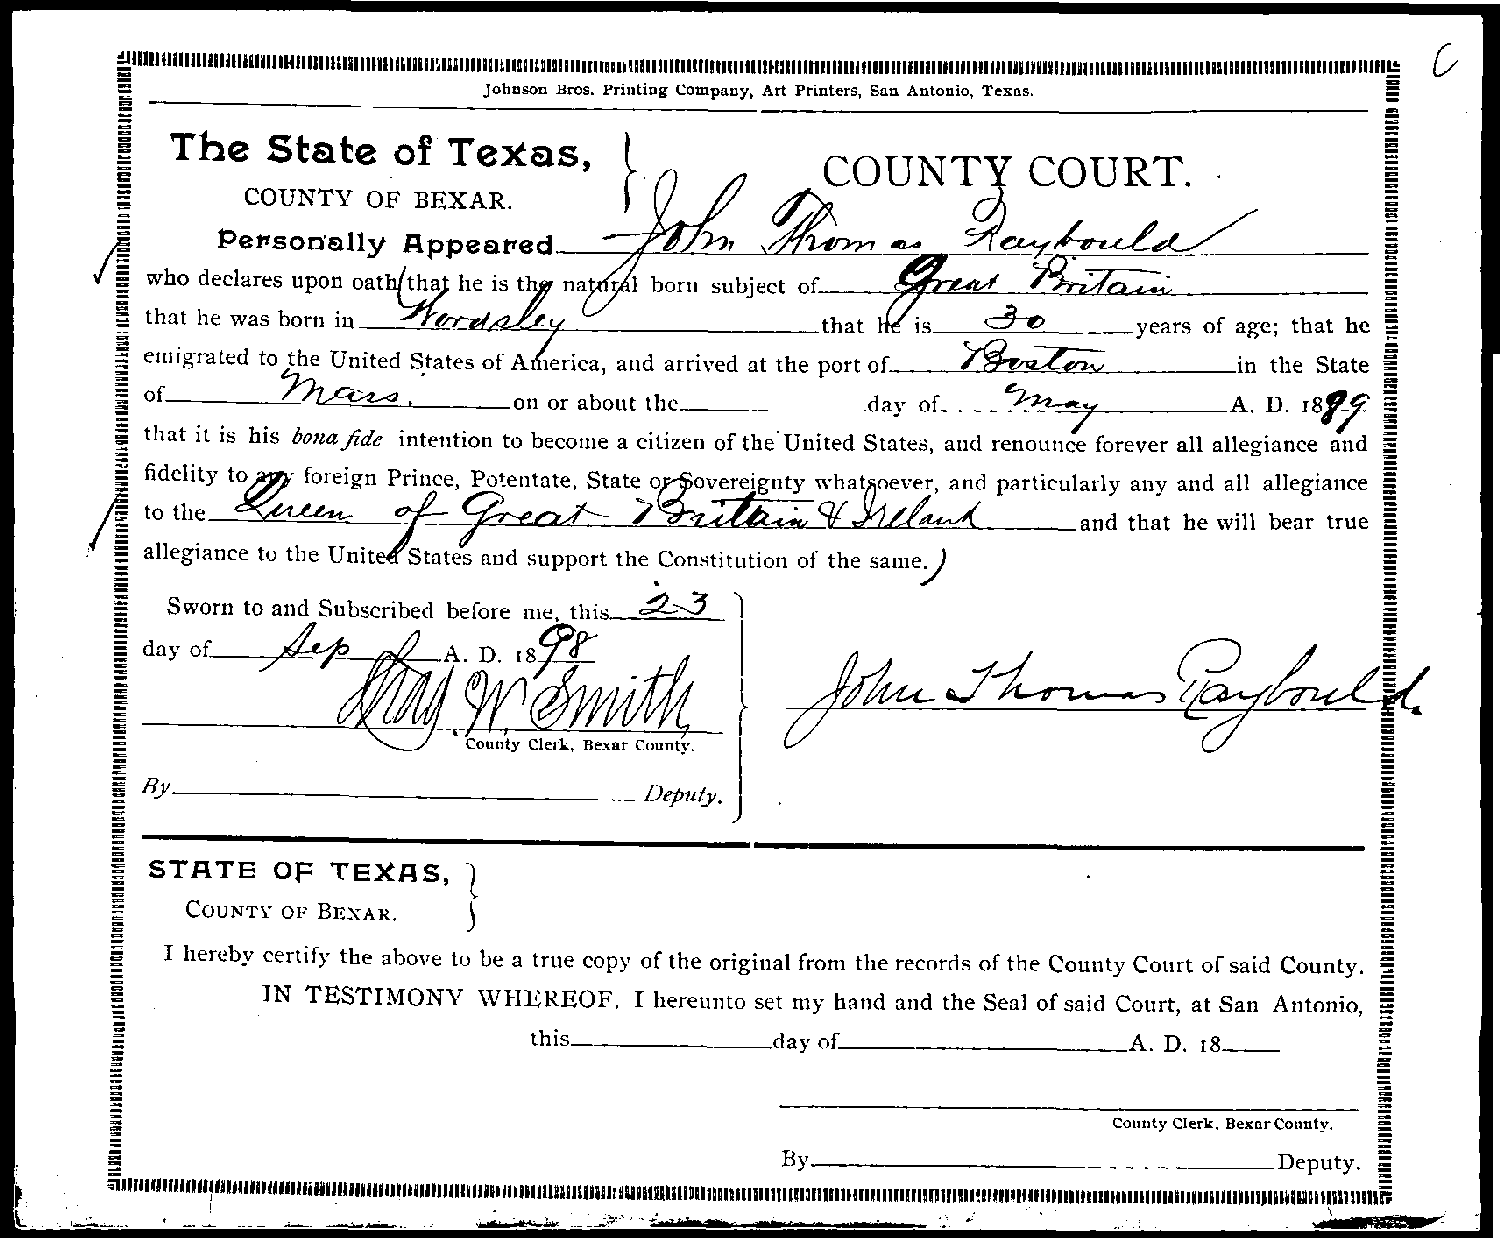 C
Johnson Bros. Printing Company, Art Printers, San Antonio, Texas.
The State of Texas,
COUNTY OF BEXAR.
COUNTY COURT.
Personally Appeared John Thomas Raybould
who declares upon oath that he is the natural born subject of Great Britain
that he was born in Wordsley that he is 30 years of age; that he
emigrated to the United States of America, and arrived at the port of Boston in the State
of Mass. on or about the day of May A. D. 1889
that it is his bona fide intention to become a citizen of the United States, and renounce forever all allegiance and
fidelity to any foreign Prince, Potentate, State or Sovereignty whatsoever, and particularly any and all allegiance
to the Queen of Great Britain & Ireland and that he will bear true
allegiance to the United States and support the Constitution of the same.)
Sworn to and Subscribed before me, this 23
day of Sep A. D. 1898
Thad W. Smith
County Clerk, Bexar County.
By Deputy.
John Thomas Raybould.
STATE OF TEXAS,
COUNTY OF BEXAR.
I hereby certify the above to be a true copy of the original from the records of the County Court of said County.
IN TESTIMONY WHEREOF, I hereunto set my hand and the Seal of said Court, at San Antonio,
this day of A. D. 18
County Clerk, Bexar County.
By Deputy.